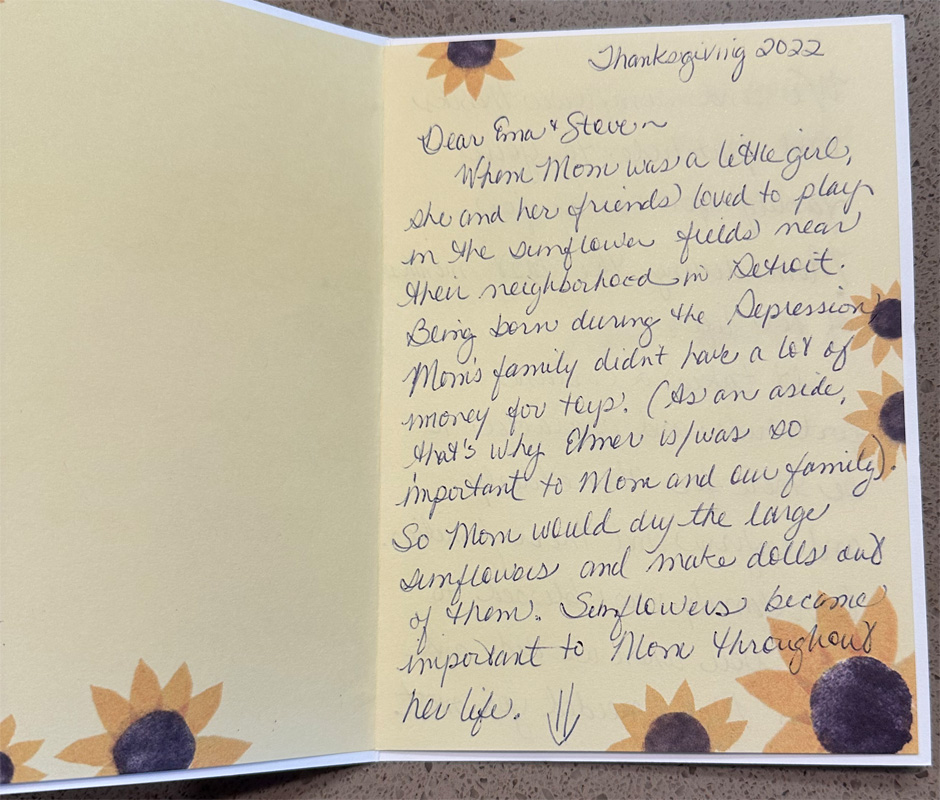 Thanksgiving 2022
Dear Ema & Steve~
When Mom was a little girl,
she and her friends loved to play
in the sunflower fields near
their neighborhood in Detroit.
Being born during the Depression,
Mom's family didn't have a lot of
money for toys. (As an aside,
that's why Elmer is/was so
important to Mom and our family).
So Mom would dry the large
sunflowers and make dolls out
of them. Sunflowers became
important to Mom throughout
her life.